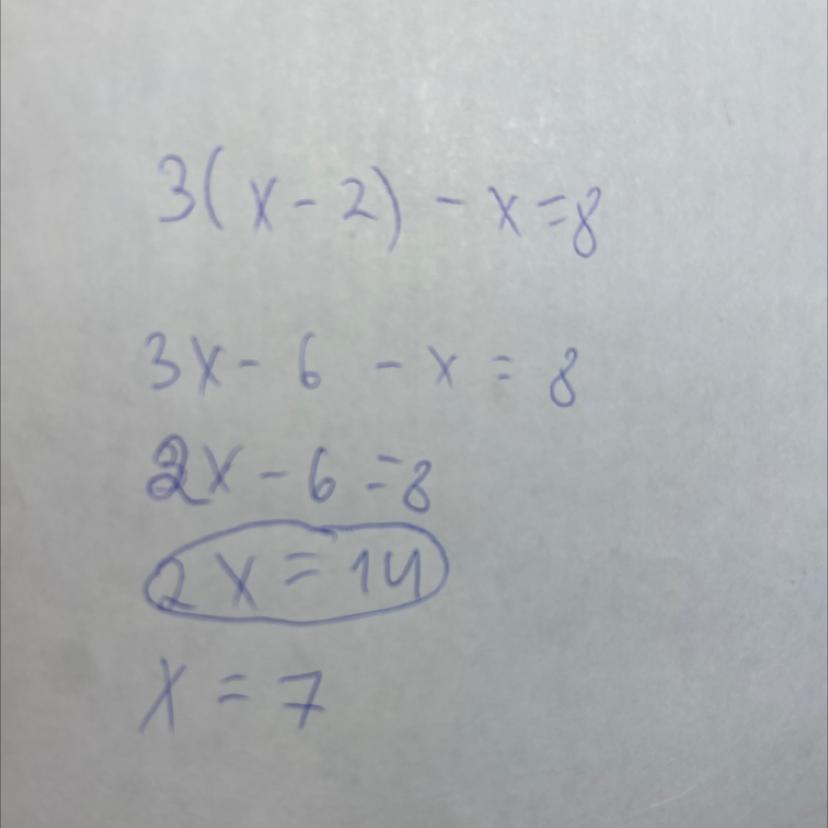 3(x-2)-x=8
3x-6-x=8
2x-6=8
2x=14
x=7